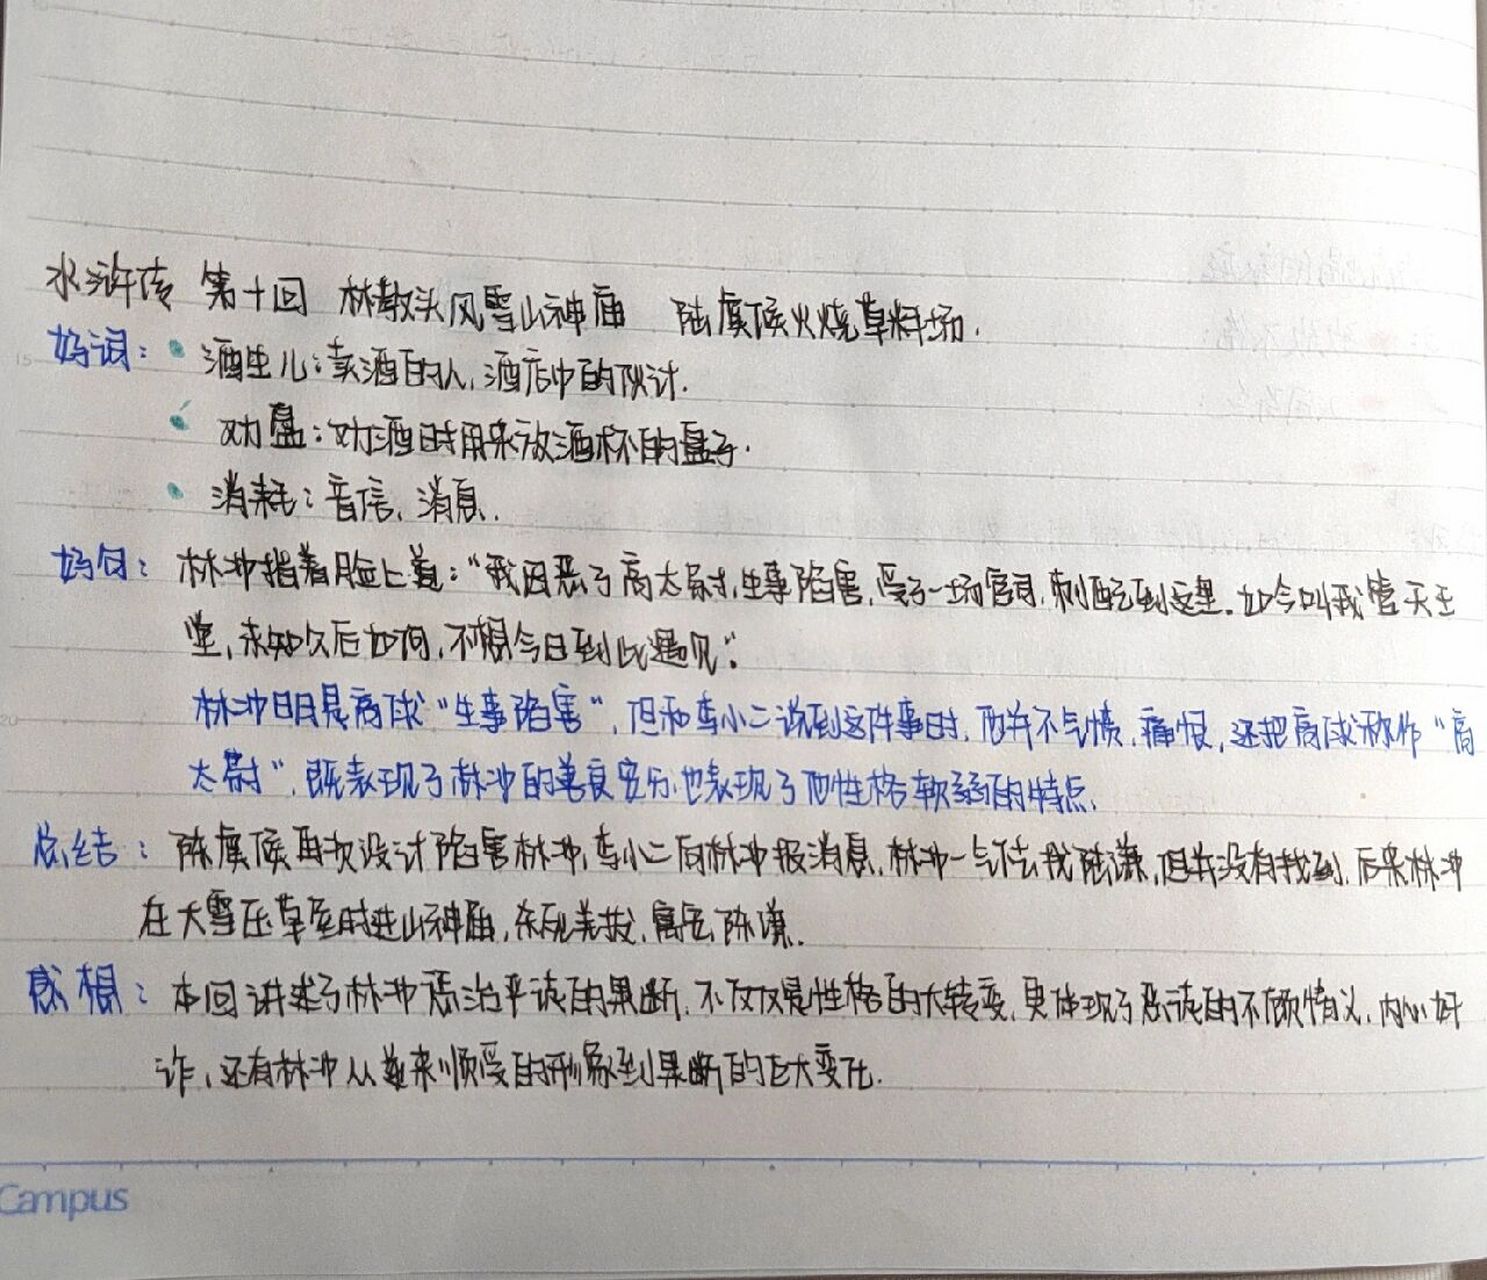 水浒传 第十回 林教头风雪山神庙 陆虞候火烧草料场.
好词: 酒生儿:卖酒的人,酒店中的伙计.
劝盘:劝酒时用来放酒杯的盘子.
消耗:音信、消息.
好句: 林冲指着脸上道:“我因恶了高太尉,生事陷害,受了一场官司,刺配到这里.如今叫我管天王
堂,未知久后如何,不想今日到此遇见”.
林冲明明是高俅“生事陷害”,但和李小二说到这件事时,他并不气愤、痛恨,还把高俅称作“高
太尉”,既表现了林冲的善良安分,也表现了他性格软弱的特点.
总结: 陈虞候再次设计陷害林冲,李小二向林冲报消息,林冲一气下去找陆谦,但并没有找到,后来林冲
在大雪压草屋时进山神庙,
感想: 本回讲述了林冲惩治的果断,不仅仅是性格的大转变,更体现了的不顾情义、内心奸
诈,还有林冲从逆来顺受的形象到果断的巨大变化.
Campus